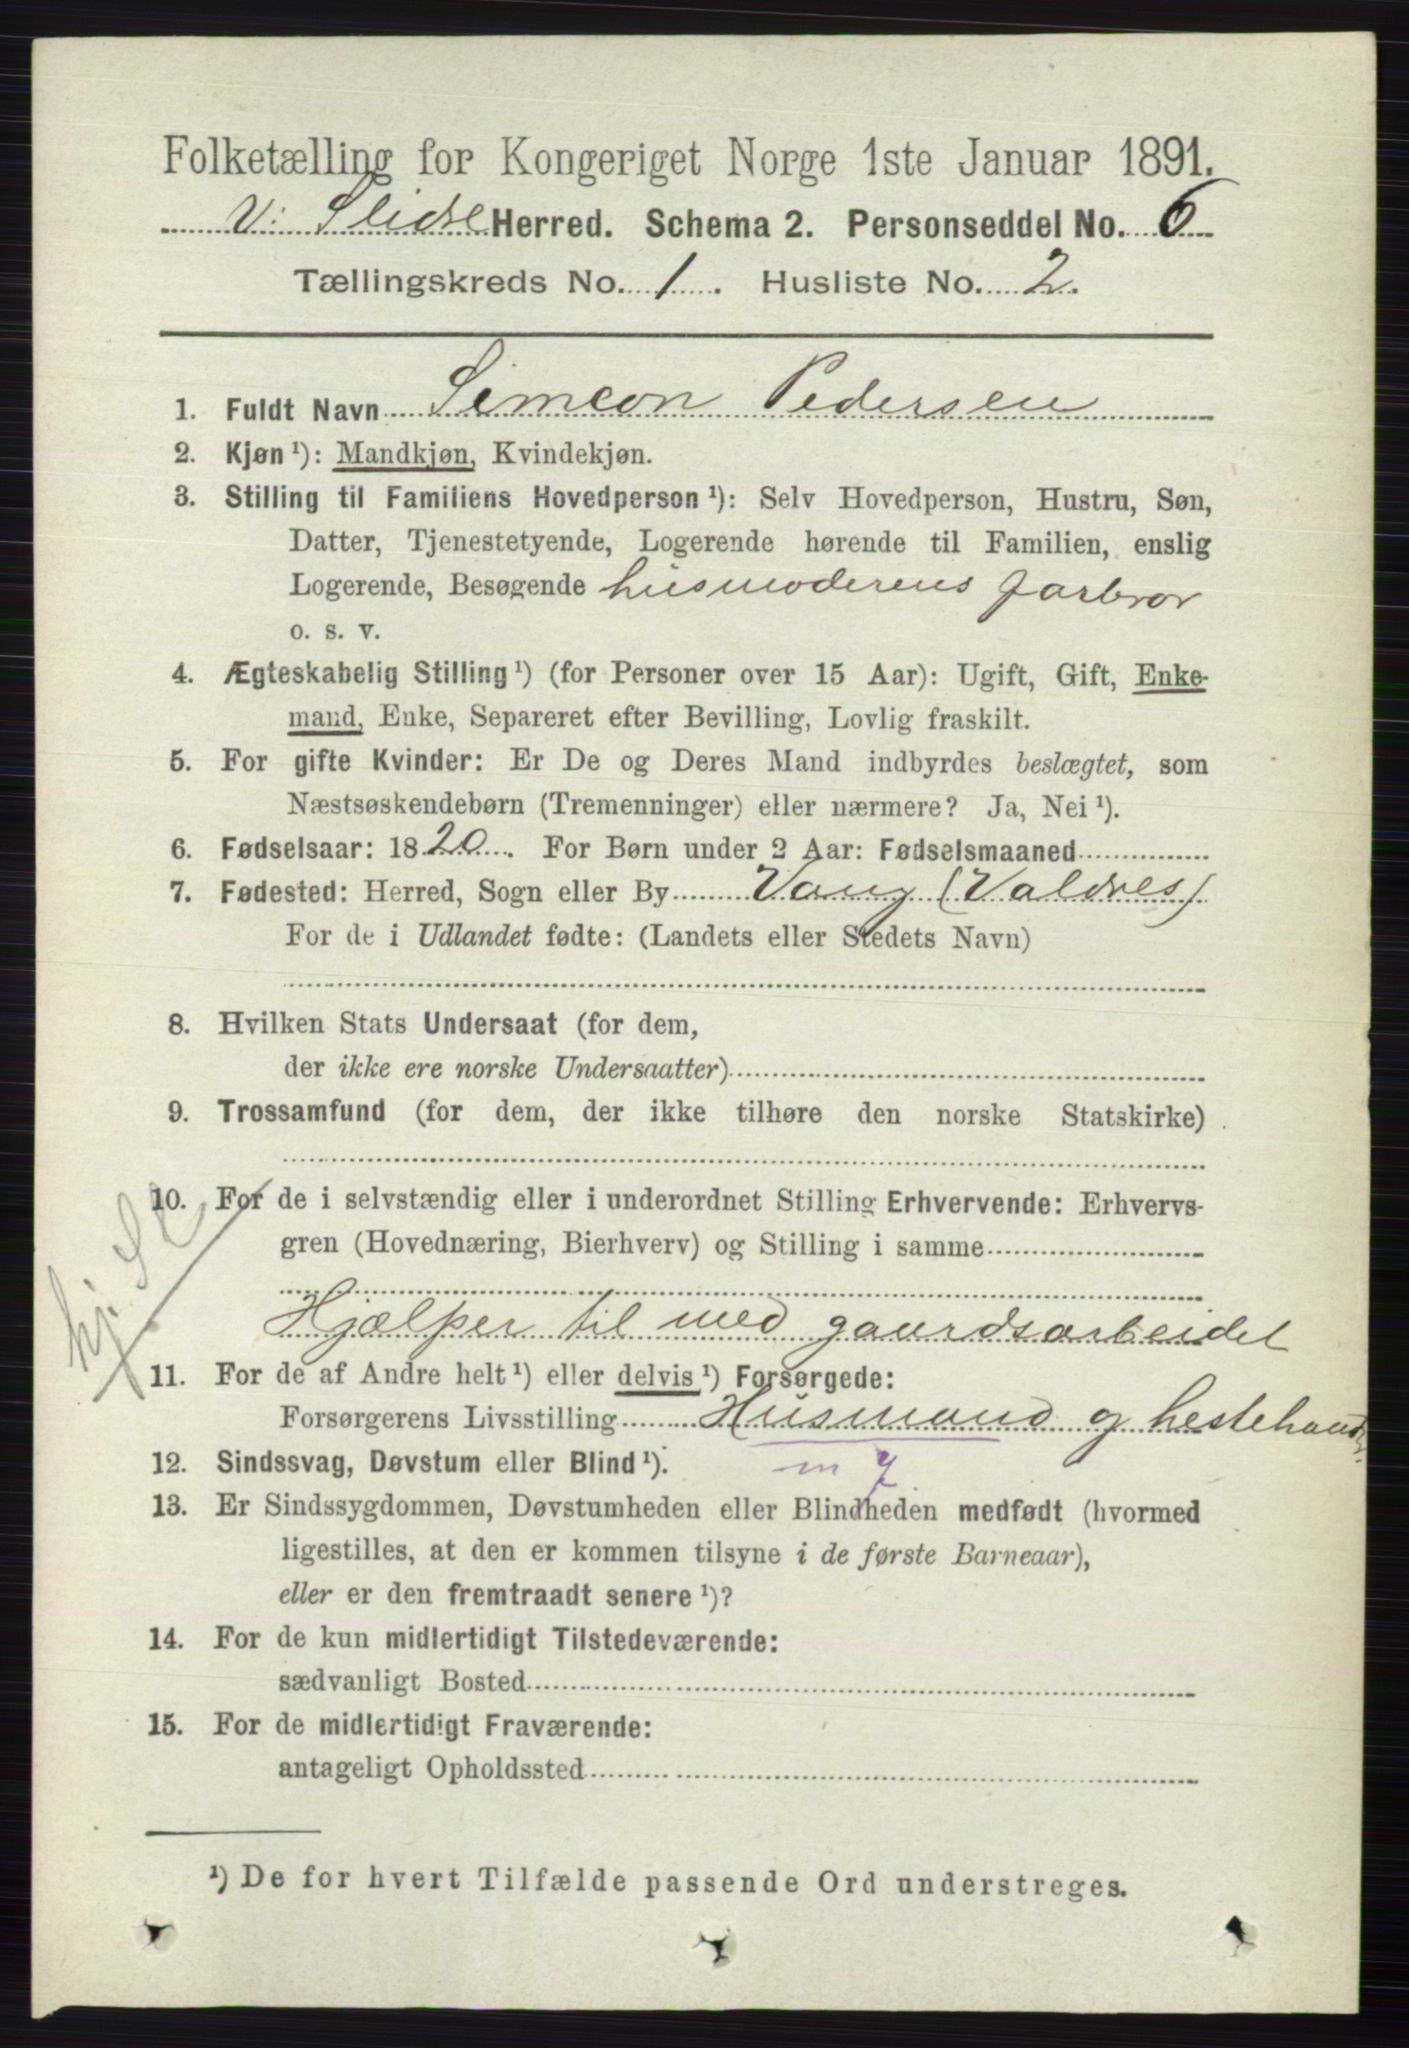 Folketælling for Kongeriget Norge 1ste Januar 1891.
V. Slidre Herred. Schema 2. Personseddel No. 6
Tællingskreds No. 1. Husliste No. 2.
1. Fuldt Navn Simeon Pedersen
2. Kjøn ¹): Mandkjøn, Kvindekjøn.
3. Stilling til Familiens Hovedperson ¹): Selv Hovedperson, Hustru, Søn,
Datter, Tjenestetyende, Logerende hørende til Familien, enslig
Logerende, Besøgende husmoderens farbror
o. s. v.
4. Ægteskabelig Stilling ¹) (for Personer over 15 Aar): Ugift, Gift, Enke-
mand, Enke, Separeret efter Bevilling, Lovlig fraskilt.
5. For gifte Kvinder: Er De og Deres Mand indbyrdes beslægtet, som
Næstsøskendebørn (Tremenninger) eller nærmere? Ja, Nei ¹).
6. Fødselsaar: 1820. For Børn under 2 Aar: Fødselsmaaned
7. Fødested: Herred, Sogn eller By Vang (Valdres)
For de i Udlandet fødte: (Landets eller Stedets Navn)
8. Hvilken Stats Undersaat (for dem,
der ikke ere norske Undersaatter)
9. Trossamfund (for dem, der ikke tilhøre den norske Statskirke)
10. For de i selvstændig eller i underordnet Stilling Erhvervende: Erhvervs-
gren (Hovednæring, Bierhverv) og Stilling i samme
Hjælper til med gaardsarbeidet
11. For de af Andre helt ¹) eller delvis ¹) Forsørgede:
Forsørgerens Livsstilling Husmand og hestehandl.
12. Sindssvag, Døvstum eller Blind ¹). m 7
13. Er Sindssygdommen, Døvstumheden eller Blindheden medfødt (hvormed
ligestilles, at den er kommen tilsyne i de første Barneaar),
eller er den fremtraadt senere ¹)?
14. For de kun midlertidigt Tilstedeværende:
sædvanligt Bosted
15. For de midlertidigt Fraværende:
antageligt Opholdssted
¹) De for hvert Tilfælde passende Ord understreges.